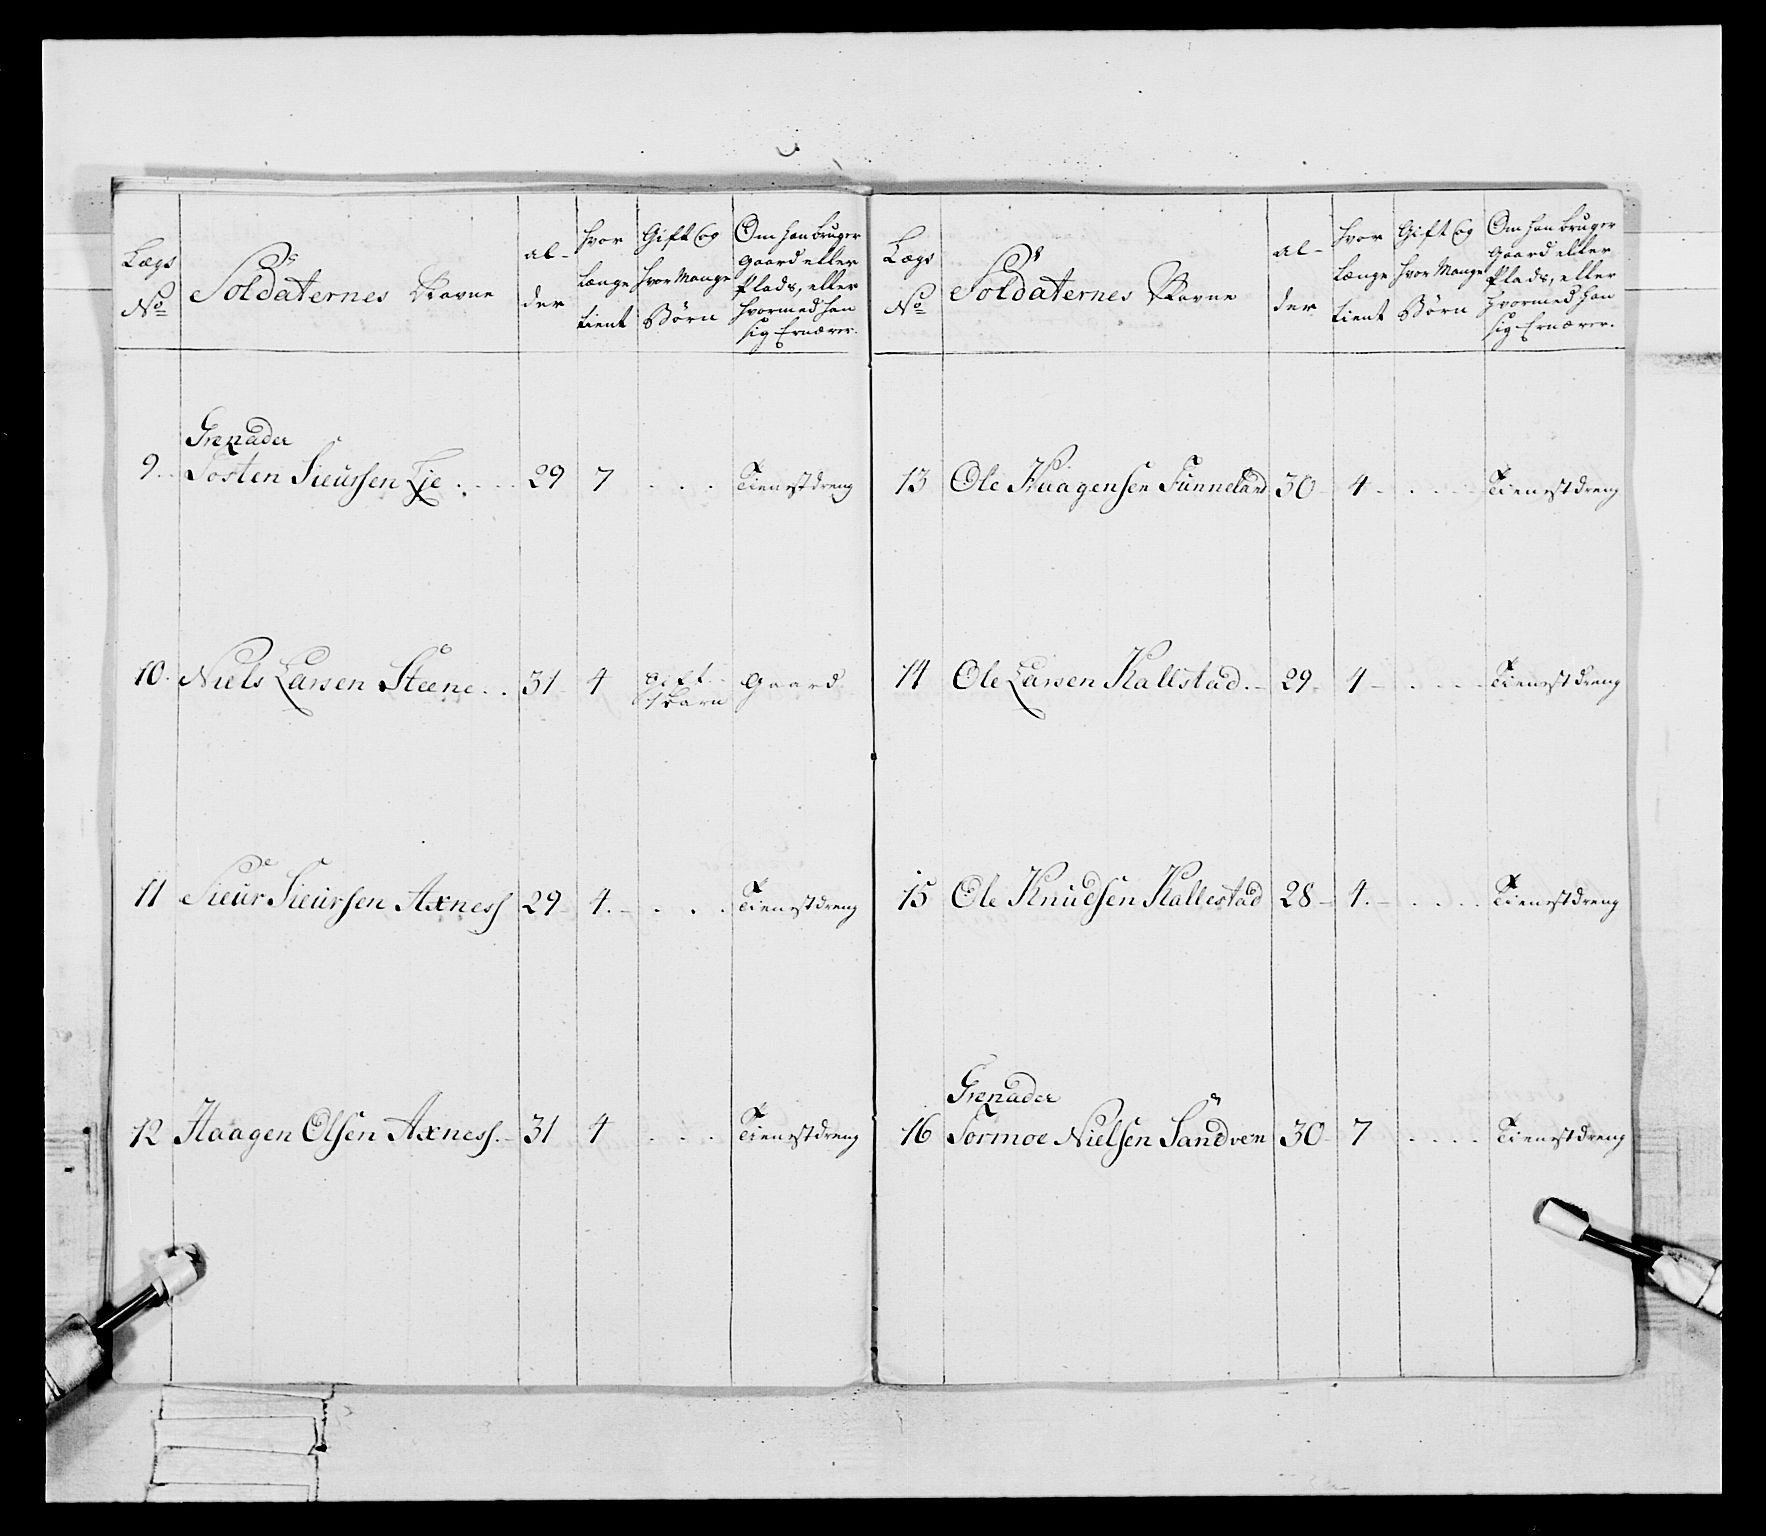 Lægs No
Soldaternes Navne
al-der
hvor længe tient
Gift og hvor Mange Børn
Om han bruger gaard eller Plads, eller hvormed han sig Ernærer.
Grenader
9. Tosten Sieursen Lie 29 7 Tienestdreng
10. Niels Larsen Steene 31 4 gift 1 barn gaard
11 Sieur Sieursen Axness 29 4. Tienestdreng
12 Haagen Olsen Axness. 31 4 Tienestdreng
Lægs No
Soldaternes Navne
al-der
hvor længe tient
Gift og hvor Mange Børn
Om han bruger gaard eller Plads, eller hvormed han sig Ernærer.
13 Ole Haagensen 30 4 Tienestdreng
14 Ole Larsen Kallstad. 29 4 Tienestdreng
15 Ole Knudsen Kallestad 28 4. Tienestdreng
Grenader
16 Tormoe Nielsen Sandven 30 7 Tienestdreng